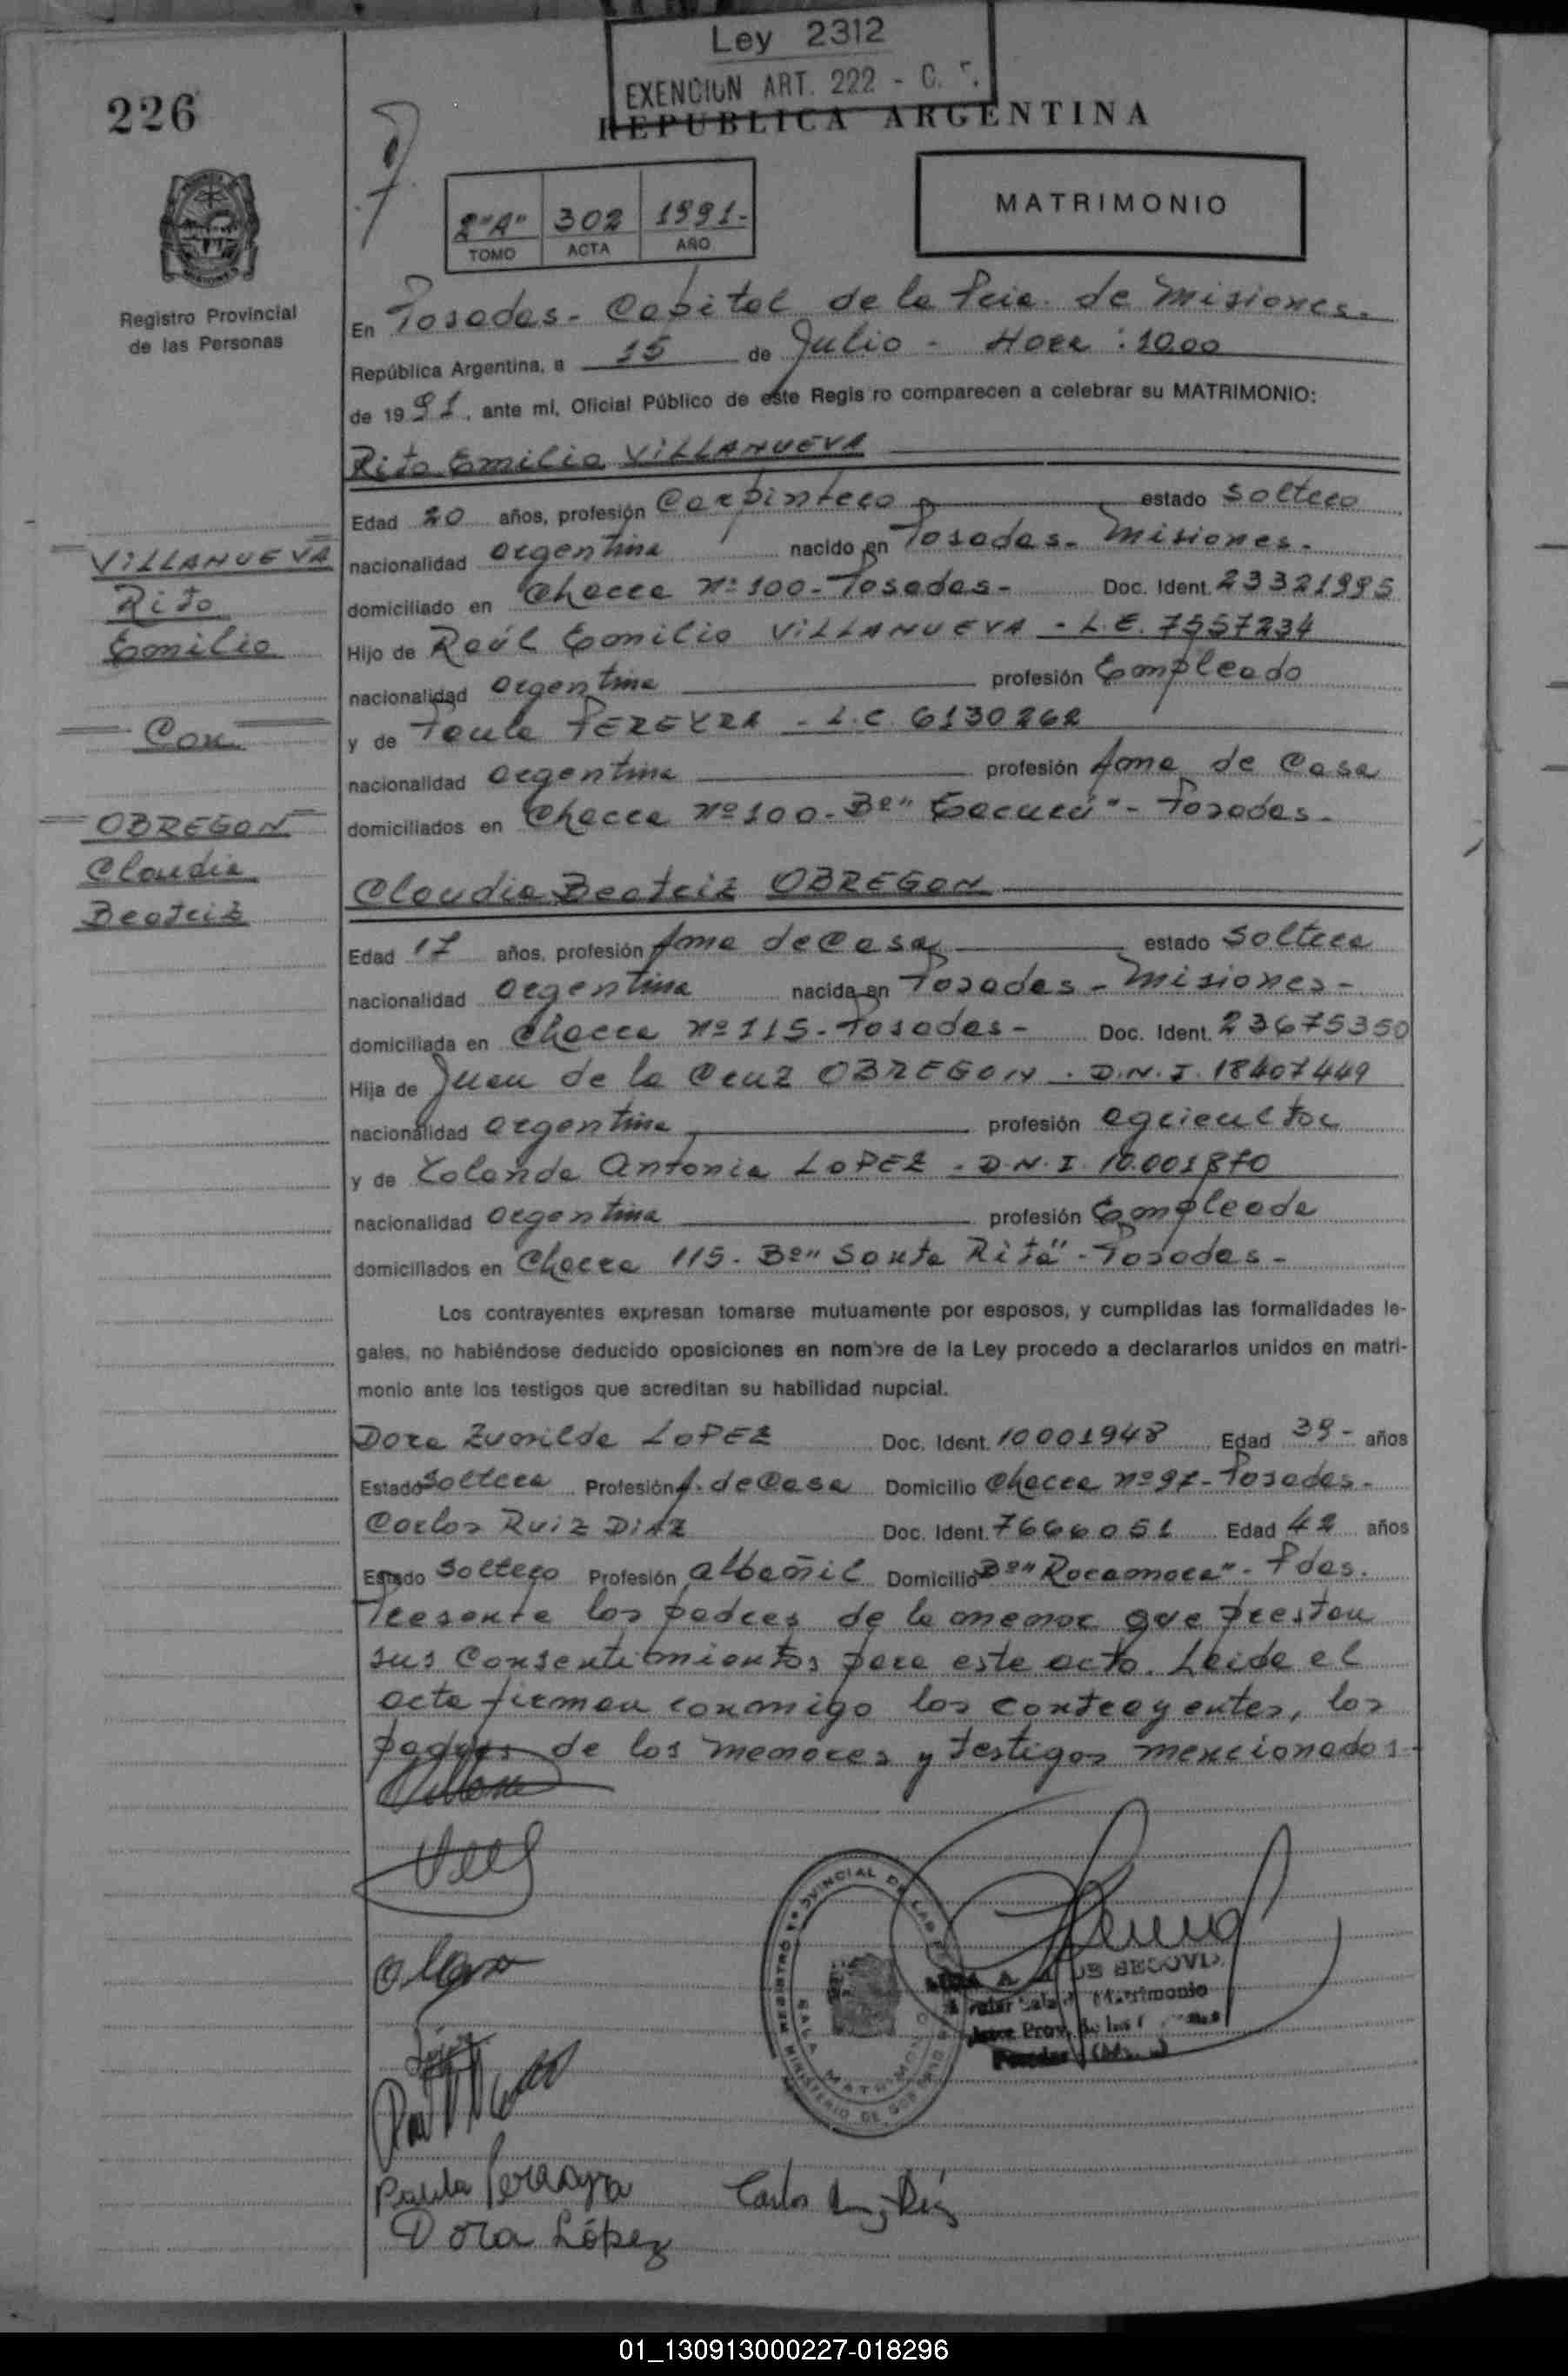 Ley 2312
EXENCION ART. 222 - C.
226
REPUBLICA ARGENTINA
2"A" 302 1991-
TOMO ACTA AÑO
MATRIMONIO
Registro Provincial
de las Personas
En Posadas - Capital de la Pcia. de Misiones.
República Argentina, a 15 de Julio - Hora: 10.00
de 1991, ante mi, Oficial Público de este Registro comparecen a celebrar su MATRIMONIO:
Rito Emilio VILLANUEVA
Edad 20 años, profesión Carpintero estado Soltero
nacionalidad argentina nacido en Posadas - Misiones -
domiciliado en Chacra Nº 100 - Posadas - Doc. Ident. 23321995
Hijo de Raúl Emilio VILLANUEVA - L.E. 7557234
nacionalidad argentina profesión Empleado
y de Paula PEREYRA - L.C. 6130262
nacionalidad argentina profesión Ama de Casa
domiciliados en Chacra Nº 100 - Bº " - Posadas -
VILLANUEVA
Rito
Emilio
Con
OBREGON
Claudia
Beatriz
Claudia Beatriz OBREGON
Edad 17 años, profesión Ama de Casa estado Soltera
nacionalidad argentina nacida en Posadas - Misiones -
domiciliada en Chacra Nº 115 - Posadas - Doc. Ident. 23675350
Hija de Juan de la Cruz OBREGON - D.N.I. 18407449
nacionalidad argentina profesión agricultor
y de Yolanda Antonia LOPEZ - D.N.I. 10.001870
nacionalidad argentina profesión Empleada
domiciliados en Chacra 115 - Bº "Santa Rita" - Posadas -
Los contrayentes expresan tomarse mutuamente por esposos, y cumplidas las formalidades le-
gales, no habiéndose deducido oposiciones en nombre de la Ley procedo a declararlos unidos en matri-
monio ante los testigos que acreditan su habilidad nupcial.
Dora Zunilda LOPEZ Doc. Ident. 10001948 Edad 39 - años
Estado Soltera Profesión A. de Casa Domicilio Chacra nº 97 - Posadas -
Carlos RUIZ DIAZ Doc. Ident. 7666051 Edad 42 años
Estado Soltero Profesión albañil Domicilio Bº "Rocamora" - Pdas.
Presente los padres de la menor que prestan
sus consentimientos para este acto. Leida el
acta firman conmigo los contrayentes, los
padres de los menores y testigos mencionados -
REGISTRO PROVINCIAL DE LAS
SALA MATRIMONIO
MINISTERIO DE GOBIERNO
DE SEGOVIA
Matrimonio
Prov. de las
Posadas
Paula Pereyra
Carlos Ruiz Díaz
Dora López
01_130913000227-018296